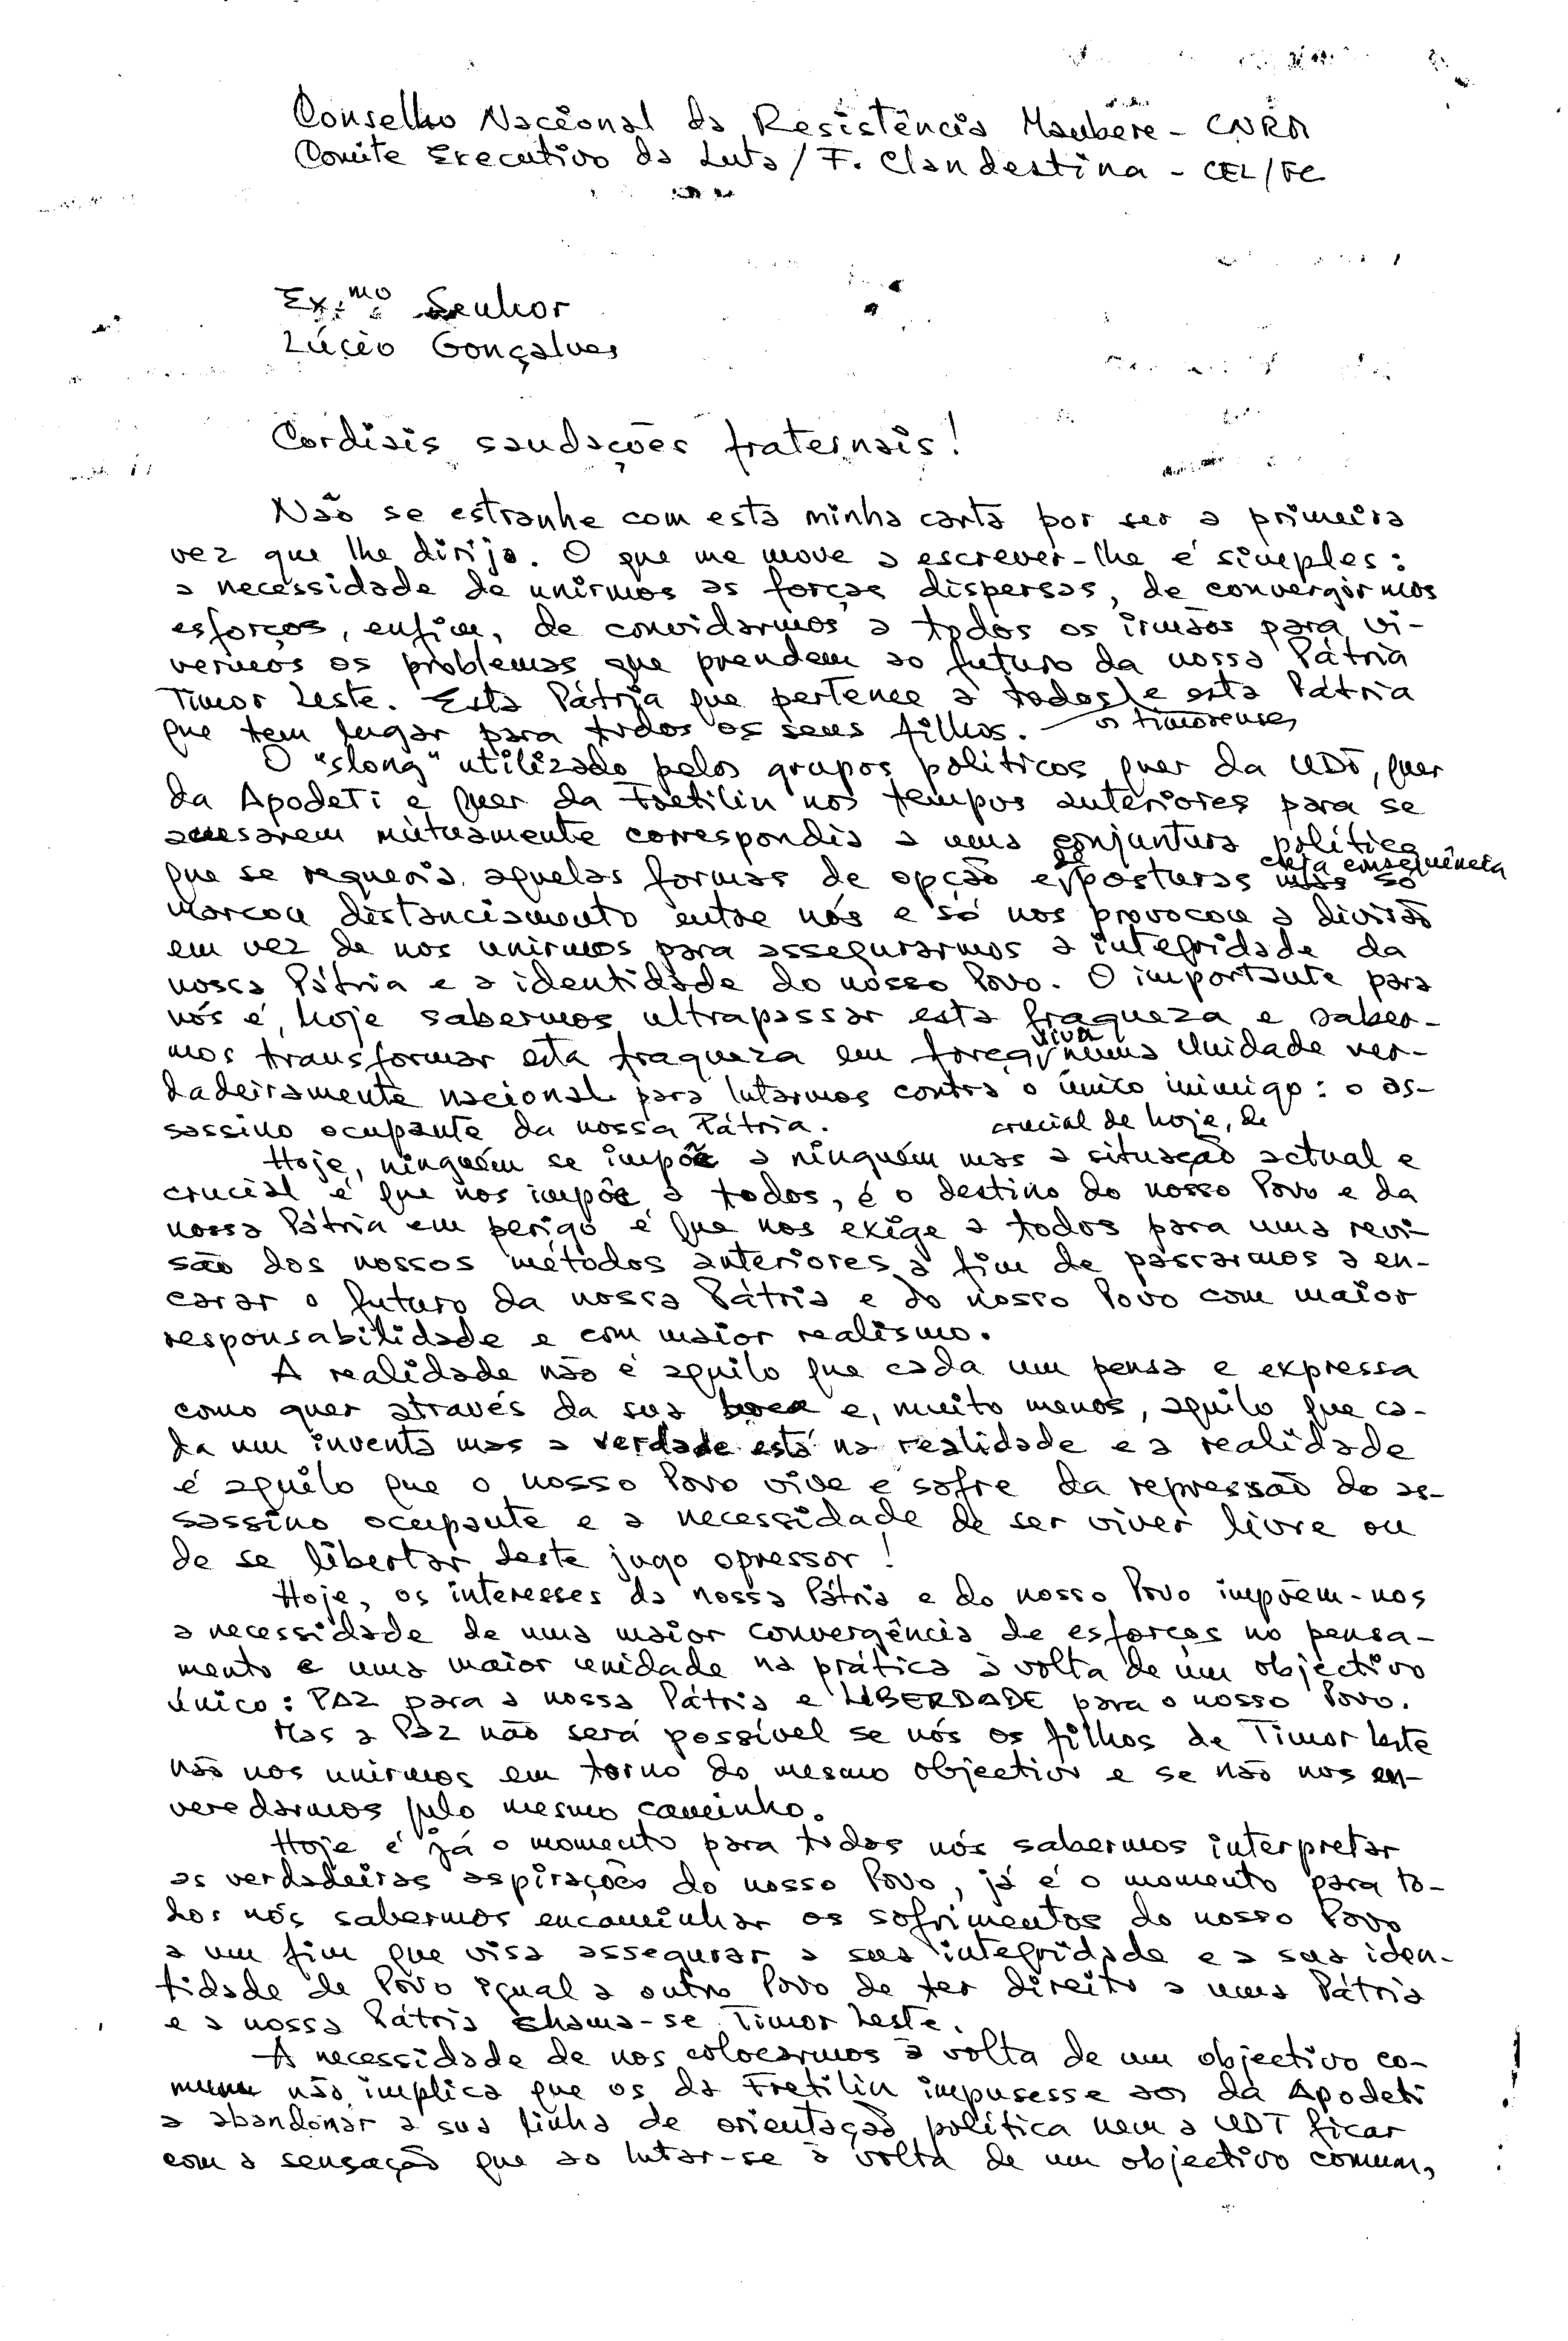 Conselho Nacional da Resistência Maubere - CNRM
Comite Executivo da Luta / F. Clandestina - CEL/FC
Ex.mo Senhor
Lúcio Gonçalves
Cordiais saudações fraternais!
Não se estranhe com esta minha carta por ser a primeira
vez que lhe dirijo. O que me move a escrever-lhe é simples:
a necessidade de unirmos as forças dispersas, de convergirmos
esforços, enfim, de convidarmos a todos os irmãos para vi-
vermos os problemas que prendem ao futuro da nossa Pátria
Timor Leste. Esta Pátria que pertence a todos e esta Pátria
os timorenses
que tem lugar para todos os seus filhos.
O "slong" utilizado pelos grupos políticos quer da UDT, quer
da Apodeti e quer da Fretilin nos tempos anteriores para se
acusarem mútuamente correspondia a uma conjuntura política
cuja consequência
que se requeria aquelas formas de opção e de posturas mas só
marcou distanciamento entre nós e só nos provocou a divisão
em vez de nos unirmos para assegurarmos a integridade da
nossa Pátria e a identidade do nosso Povo. O importante para
nós é, hoje sabermos ultrapassar esta fraqueza e saber-
viva
mos transformar esta fraqueza em força numa Unidade ver-
dadeiramente nacional para lutarmos contra o único inimigo: o as-
sassino ocupante da nossa Pátria.
crucial de hoje, de
Hoje, ninguém se impõe a ninguém mas a situação actual e
crucial é que nos impõe a todos, é o destino do nosso Povo e da
nossa Pátria em perigo é que nos exige a todos para uma revi-
são dos nossos métodos anteriores a fim de passarmos a en-
carar o futuro da nossa Pátria e do nosso Povo com maior
responsabilidade e com maior realismo.
A realidade não é aquilo que cada um pensa e expressa
como quer através da sua boca e, muito menos, aquilo que ca-
da um inventa mas a verdade está na realidade e a realidade
é aquilo que o nosso Povo vive e sofre da repressão do as-
sassino ocupante e a necessidade de ser viver livre ou
de se libertar deste jugo opressor!
Hoje, os interesses da nossa Pátria e do nosso Povo impõem-nos
a necessidade de uma maior convergência de esforços no pensa-
mento e uma maior unidade na prática à volta de um objectivo
único: PAZ para a nossa Pátria e LIBERDADE para o nosso Povo.
Mas a Paz não será possível se nós os filhos de Timor Leste
não nos unirmos em torno do mesmo objectivo e se não nos en-
veredarmos pelo mesmo caminho.
Hoje é já o momento para todos nós sabermos interpretar
as verdadeiras aspirações do nosso Povo, já é o momento para to-
dos nós sabermos encaminhar os sofrimentos do nosso Povo
a um fim que visa assegurar a sua integridade e a sua iden-
tidade de Povo igual a outro Povo de ter direito a uma Pátria
e a nossa Pátria chama-se Timor Leste.
A necessidade de nos colocarmos à volta de um objectivo co-
mum não implica que os da Fretilin impusesse aos da Apodeti
a abandonar a sua linha de orientação política nem a UDT ficar
com a sensação que ao lutar-se à volta de um objectivo comum,